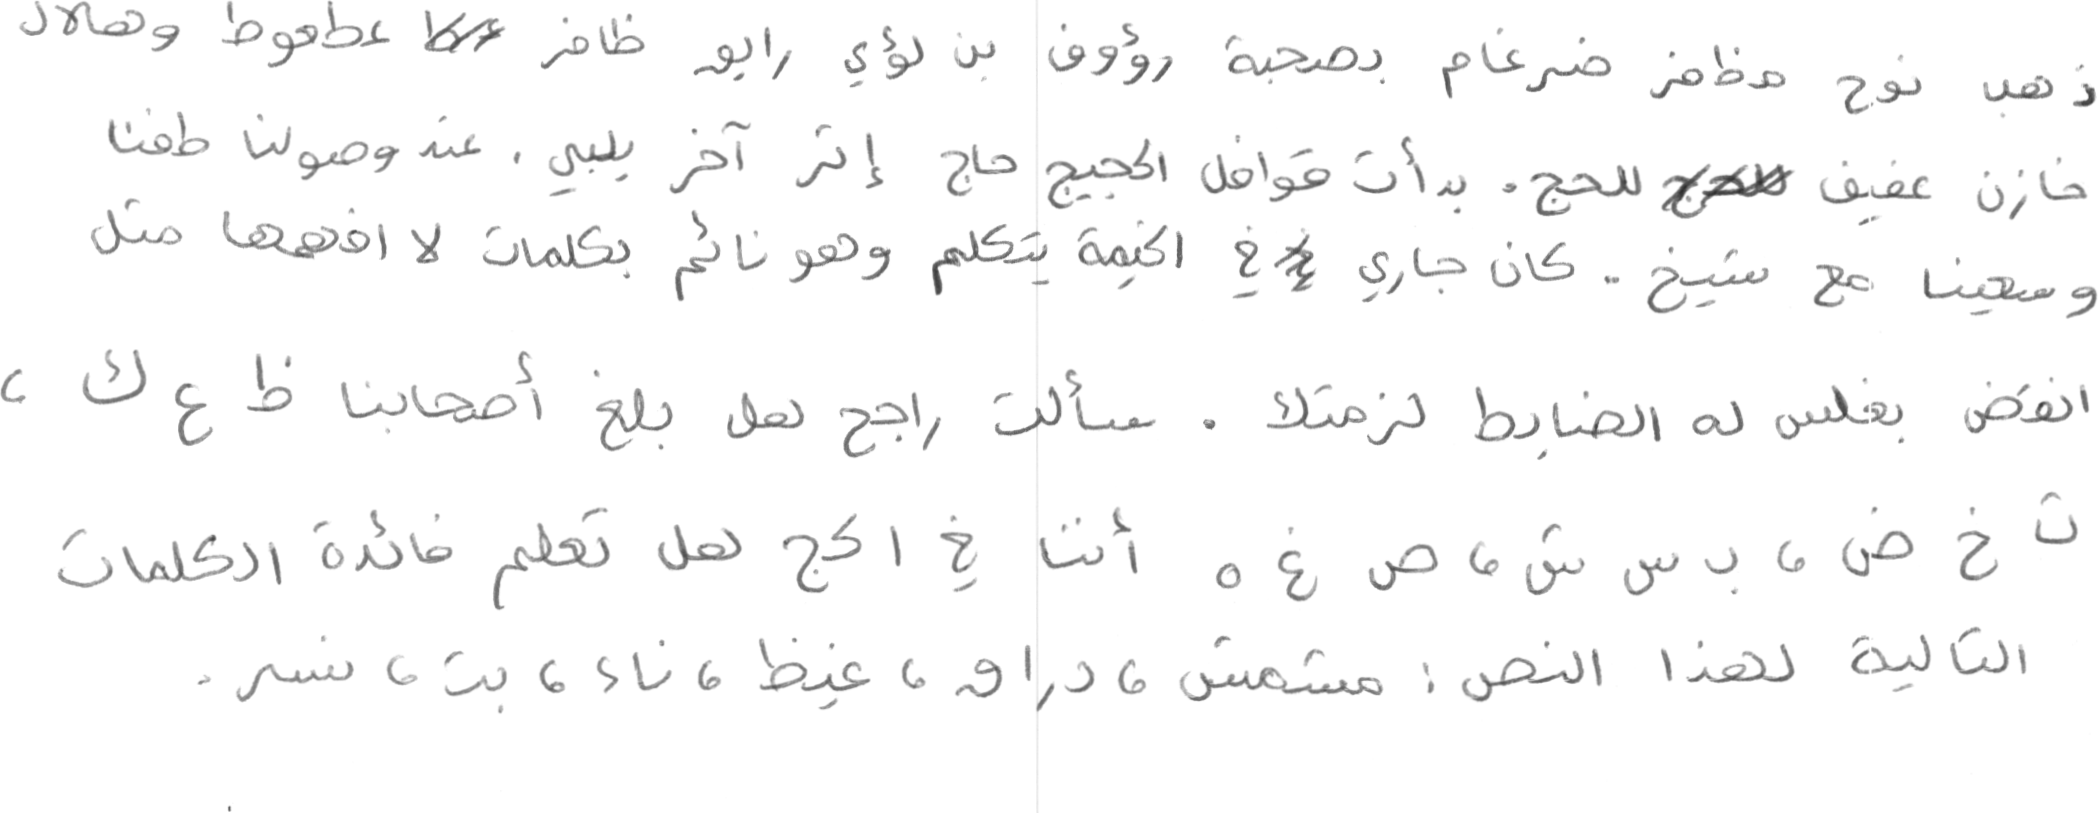 ذهب نوح مظفر ضرغام بصحبة رؤوف بن لؤي رايق ظافر عطعوط وهلال
خازن عفيف للحج. بدأت قوافل الحجيج حاج إثر آخر يلبي. عند وصولنا طفنا
وسعينا مع شيخ. كان جاري في الخيمة يتكلم وهو نائم بكلمات لا افهمها مثل
انقض بغلس له الضابط لزمتك. سألت راجح هل بلغ أصحابنا ظ ع ك ،
ث خ ض ، ب س ش ، ص غ ه أثنا في الحج هل تعلم فائدة الكلمات
التالية لهذا النص: مشمش ، دراق ، غيظ ، ناء ، بت ، نسر.